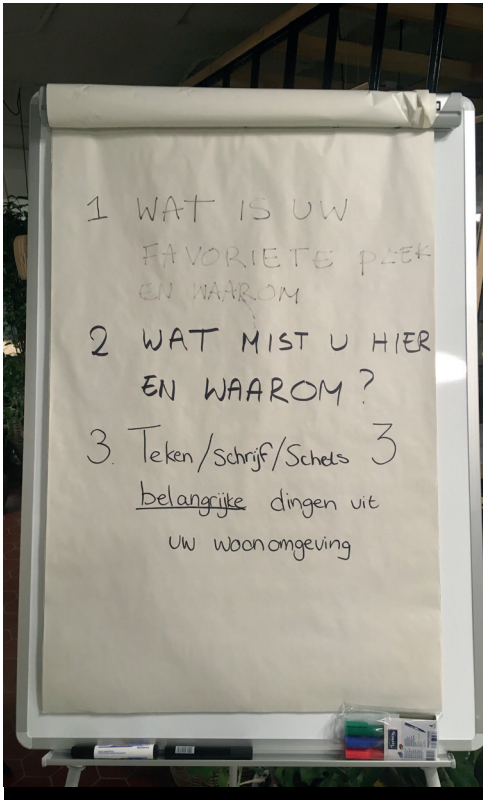 1 WAT IS UW
FAVORIETE PLEK
EN WAAROM
2 WAT MIST U HIER
EN WAAROM?
3. Teken/Schrijf/Schets 3
belangrijke dingen uit
uw woonomgeving